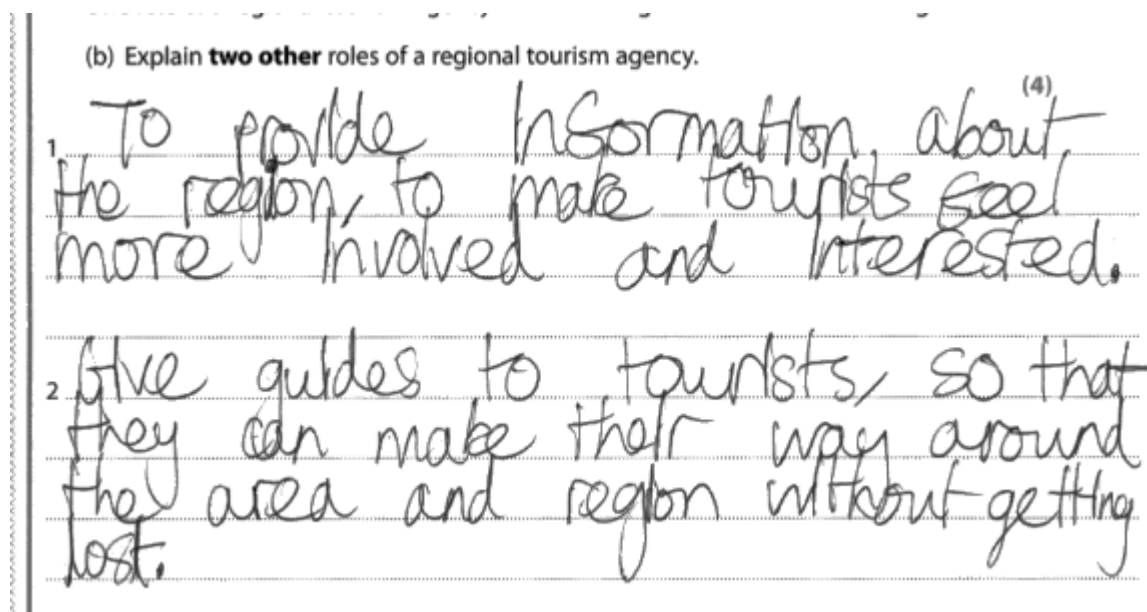 (b) Explain two other roles of a regional tourism agency.
(4)
1 To provide information about
the region, to make tourists feel
more involved and interested.
2 Give guides to tourists, so that
they can make their way around
the area and region without getting
lost.